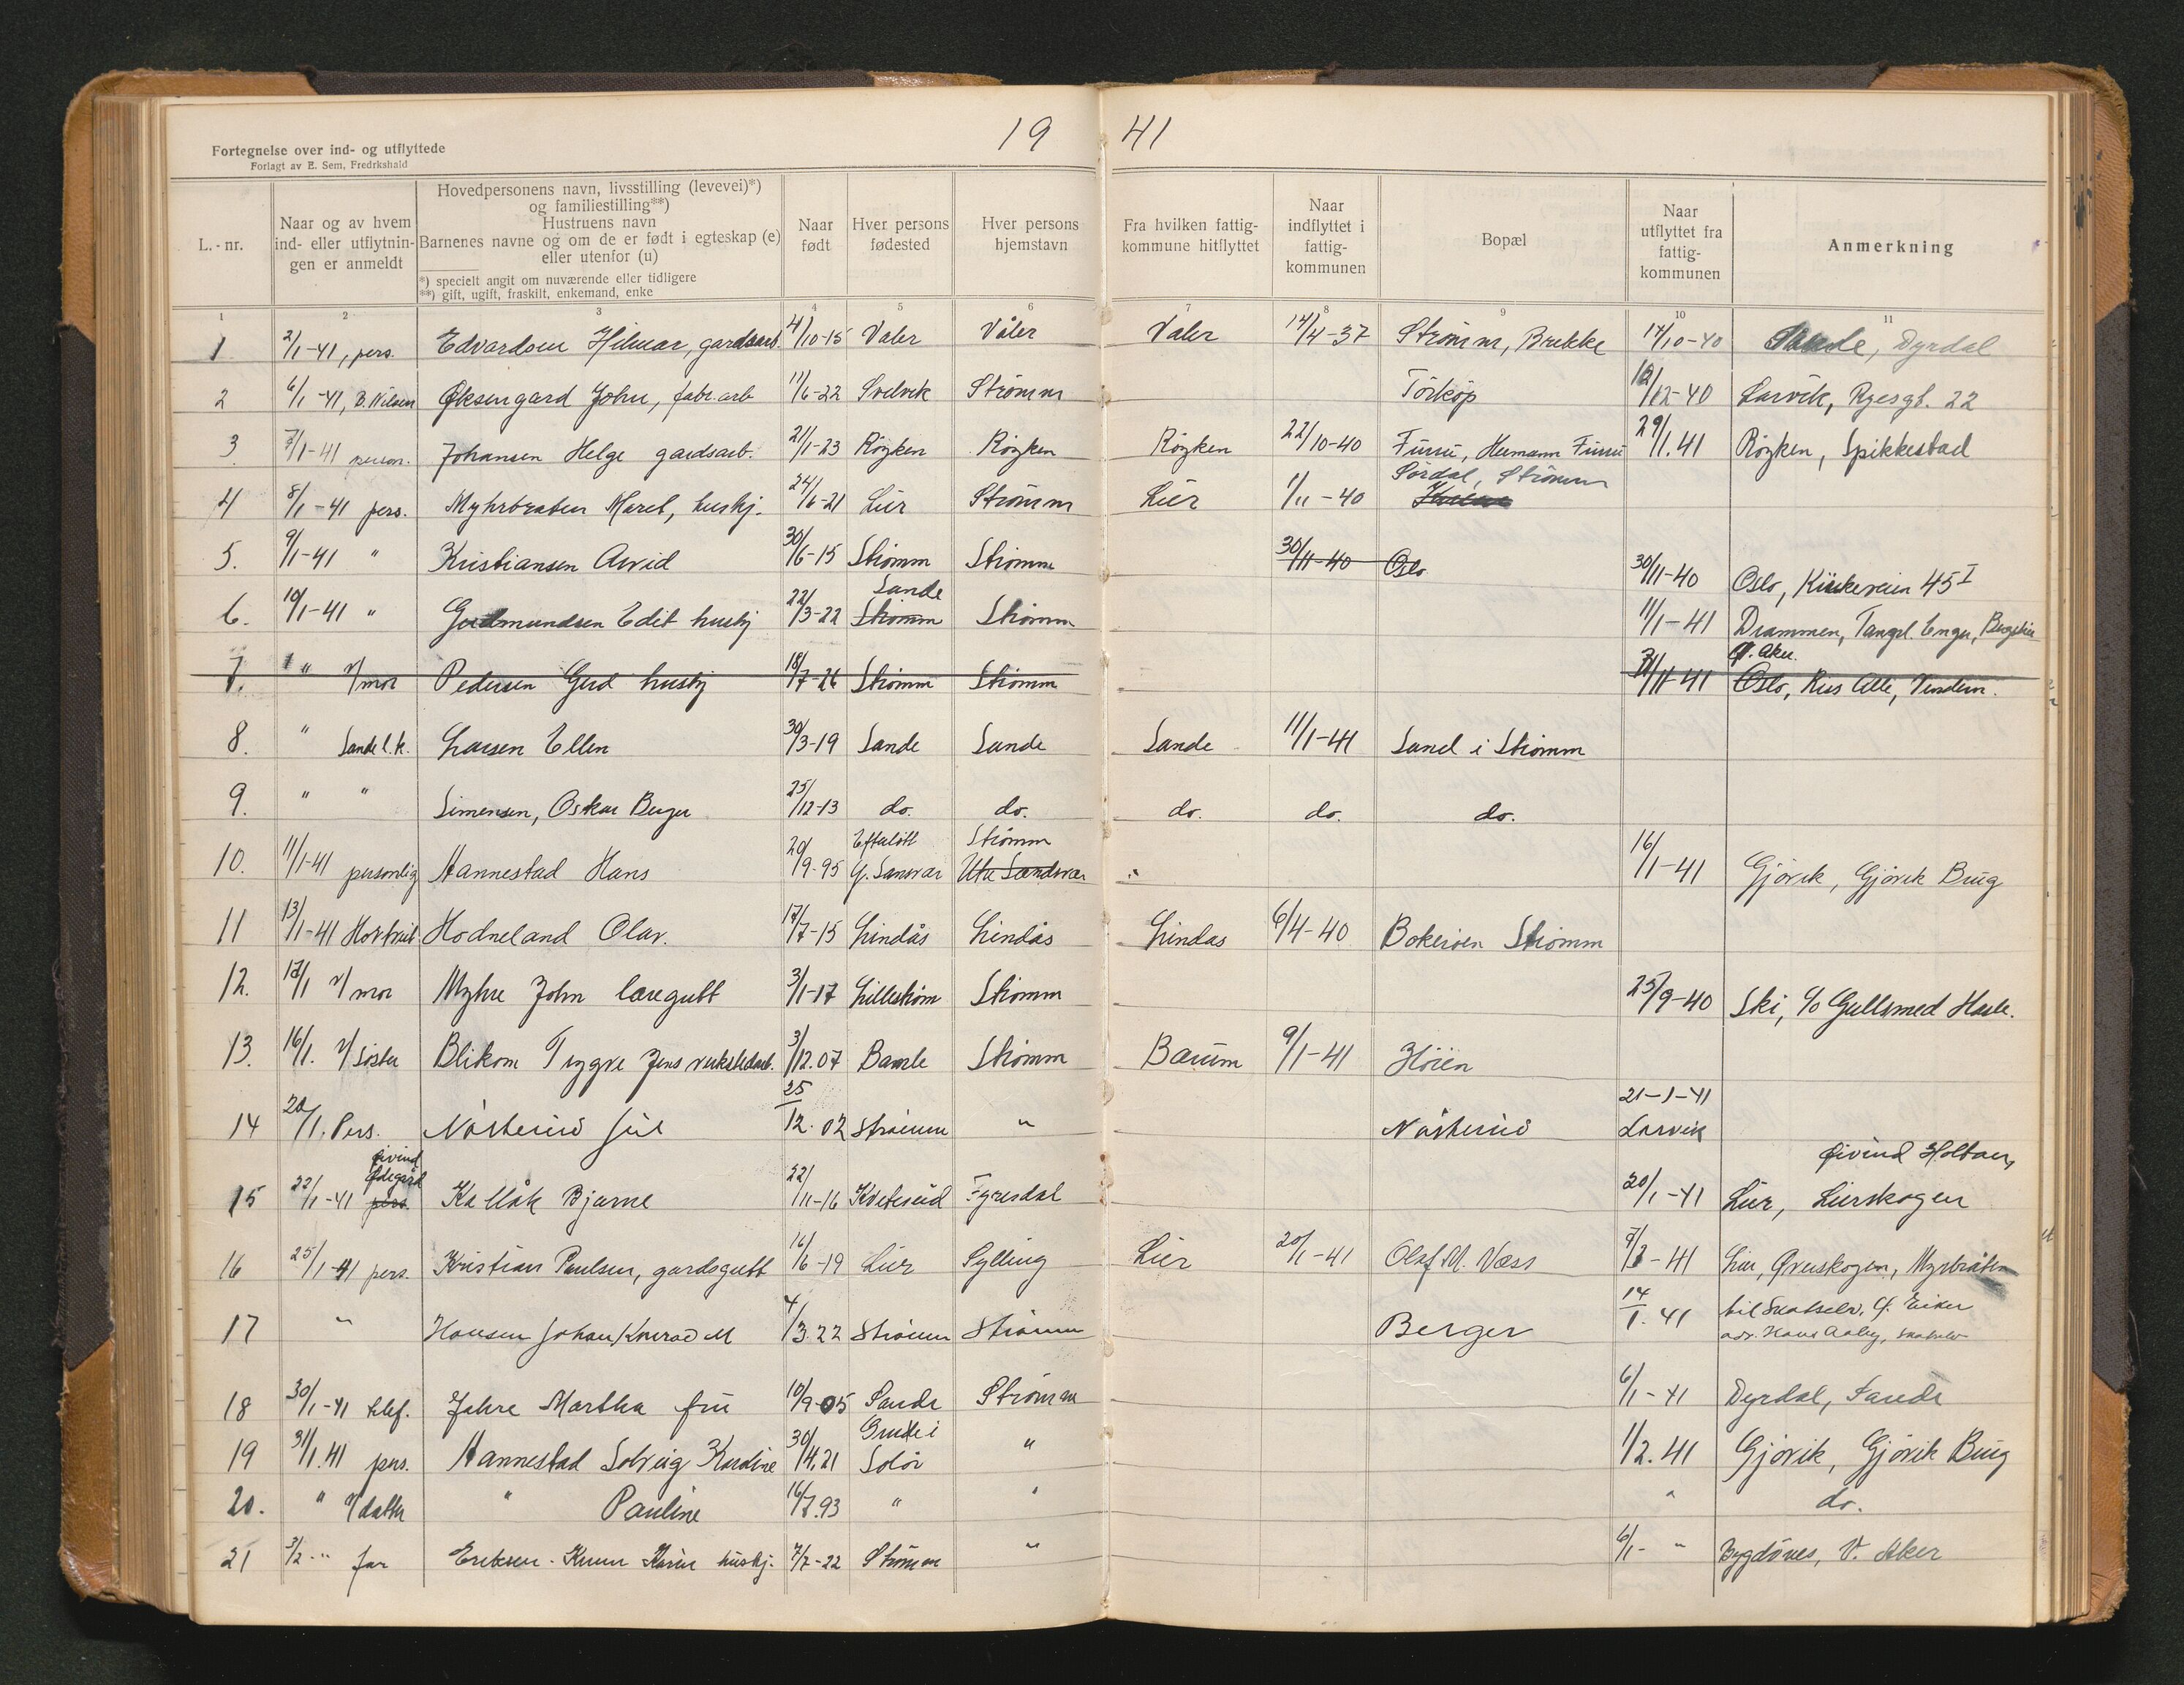 19 41
Fortegnelse over ind- og utflyttede
Forlagt av E. Sem, Fredrkshald
L.-nr. | Naar og av hvem ind- eller utflytningen er anmeldt | Hovedpersonens navn, livsstilling (levevei)*) og familiestilling**) Hustruens navn Barnenes navne og om de er født i egteskap (e) eller utenfor (u) *) specielt angit om nuværende eller tidligere **) gift, ugift, fraskilt, enkemand, enke | Naar født | Hver persons fødested | Hver persons hjemstavn | Fra hvilken fattigkommune hitflyttet | Naar indflyttet i fattigkommunen | Bopæl | Naar utflyttet fra fattigkommunen | Anmerkning
1 2 3 4 5 6 7 8 9 10 11
1 2/1-41, pers. Edvardsen Hilmar, gardsarb. 4/10-15 Våler Våler Våler 14/4-37 Strømm, Brekke 14/10-40 Sande, Dyrdal
2 6/1-41, B. Nilsen Øksengard John, fabr.arb 11/6-22 Svelvik Strømm Törkop 12/12-40 Larvik, Ryesgt. 22
3 7/1-41 person. Johansen Helge gardsarb. 21/1-23 Röyken Röyken Röyken 22/10-40 Furu, Hermann Furu 29/1.41 Röyken, Spikkestad
4 8/1-41 pers. Myhrbraten Maret, hushj. 24/6-21 Lier Strömm Lier 1/11-40 Sördal, Strömm
5. 9/1-41 " Kristiansen Arvid 30/6-15 Strömm Strömm 30/11-40 Oslo 30/11-40 Oslo, Kirkeveien 45 I
6. 10/1-41 " Gudmundsen Edit hushj 22/3-22 Sande Strömm Strömm 11/1-41 Drammen, Tangl. Enger,
7. " v/mor Pedersen Gerd hushj 18/7-26 Strömm Strömm /11-41 V. Aker. Oslo, Riis Alle, Vindern.
8. " Sande l.k. Larsen Ellen 30/3-19 Sande Sande Sande 11/1-41 Sand i Strömm
9. " " Simensen, Oskar Berger 25/12-13 do. do. do. do. do.
10. 11/1-41 personlig Hannestad Hans 20/9-95 Efterlött G. Sansvær Strömm Utr Sandsvær 16/1-41 Gjövik, Gjövik Brug
11 13/1-41 Hodneland Olav. 17/7-15 Lindås Lindås Lindas 6/4-40 Bokerøen Strömm
12. 17/1 v/mor Myhre John læregutt 3/1-17 Lilleström Strömm 25/9-40 Ski, c/o Gullsmed Hasle.
13. 16/1. v/söster Blikom Trygve Jens verkstedarb. 3/12.07 Bamle Strömm Bærum 9/1-41 Höien
14 20/1. Pers. Nösterud 25/12.02 Strömm " Nösterud 21-1-41 Larvik
15 22/1-41 pers. Øivind Ødegård Kallåk Bjarne 22/11-16 Kviteseid Fyresdal 20/1-41 Øivind Holtan, Lier, Lierskogen
16 25/1-41 pers. Kristian Paulsen, gardsgutt 16/6-19 Lier Sylling Lier 20/1-41 Olaf M. Næss 8/3-41 Lier, Øverskogen, Myrbråten
17 " Hansen Johan Konrad M 4/3.22 Strömm Strömm Berger 14/1.41 til Skotselv, Ø. Eiker adr. Hans Aaby, Skotselv
18 30/1-41 telef. Jahre Martha fru 10/9-05 Sande Strömm 6/1-41 Dyrdal, Sande
19 31/1.41 pers. Hannestad Solveig Kardine 30/4.21 Grue i Solör " 1/2.41 Gjövik, Gjövik Brug
20. " v/datter " Pauline 16/7.93 " " " do.
21 3/2 " far Eriksen-Knem Karin hushj. 7/7-22 Strömm " 6/1- " Bygdönes, V. Aker